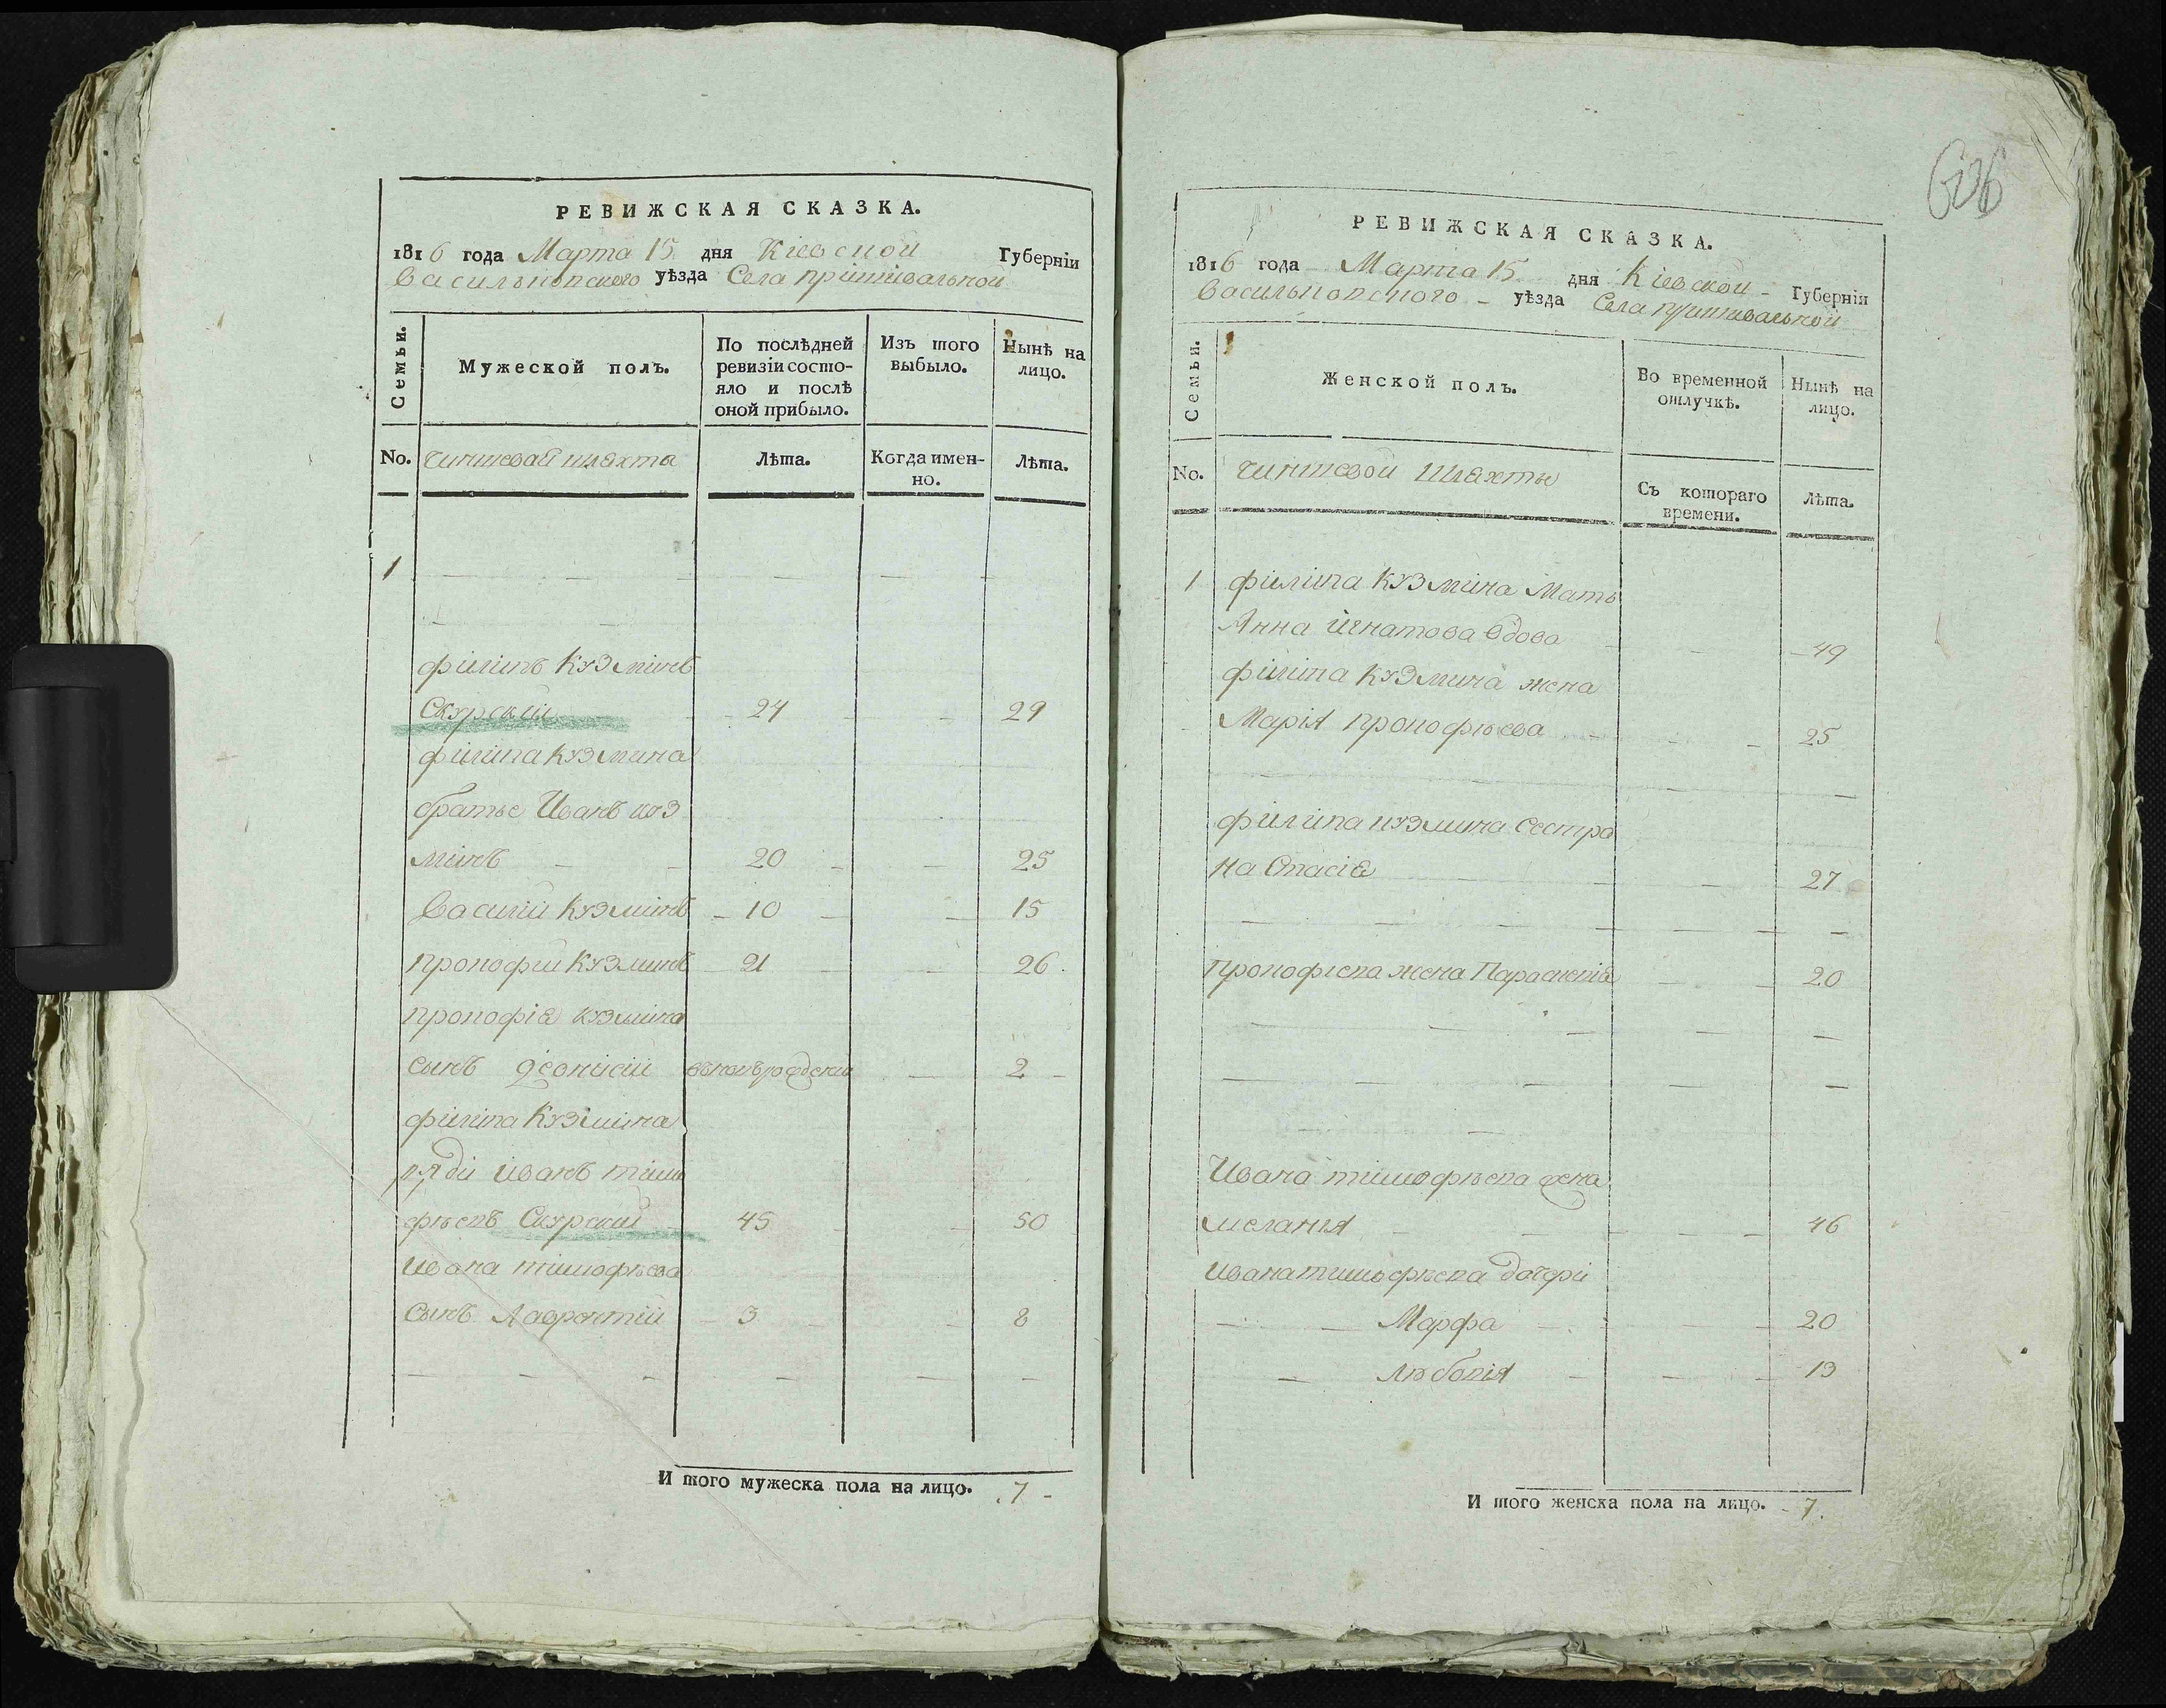 РЕВИЖСКАЯ СКАЗКА.
1816 года Марта 15 дня Кіевской Губерніи
Васильковского уѣзда Села притивальной
Семьи.
Мужеской полъ.
По послѣдней ревизіи состояло и послѣ оной прибыло.
Изъ того выбыло.
Нынѣ на лицо.
No. чиншевай шляхта Лѣта. Когда именно. Лѣта.
1
филипъ Кузминъ
Скурский 24 29
филипа Кузмина
братье Иванъ куз
минъ 20 25
Василий Кузминъ 10 15
прокофий Кузминъ 21 26
прокофія кузмина
сынъ деонисий 2
филипа Кузмина
дяди иванъ тимо
фѣевъ Скурский 45 50
ивана тимофѣева
сынъ Лаврентий 3 8
И того мужеска пола на лицо. 7
626
РЕВИЖСКАЯ СКАЗКА.
1816 года Марта 15 дня Кіевской Губерніи
Васильковского уѣзда Села притивальной
Семьи.
Женской полъ.
Во временной отлучкѣ.
Нынѣ на лицо.
No. чиншевой шляхты Съ котораго времени. Лѣта.
1 филипа Кузмина Мать
Анна игнатова вдова 49
филипа Кузмина жена
Марія прокофѣева 25
филипа кузмина Сестра
на Стасія 27
прокофіева жена Параскевія 20
Ивана тимофѣева жена
мелания 46
ивана тимофѣева дочери
Марфа 20
Любовія 13
И того женска пола на лицо. 7.